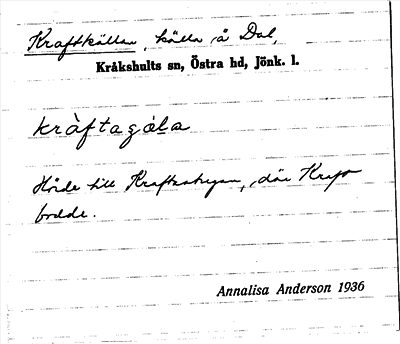 Kraftkällan, källa å Dal,
Kråkshults sn, Östra hd, Jönk. l.
kràftagála
Hörde till Kraftastugan, där Kraft
bodde.
Annalisa Anderson 1936